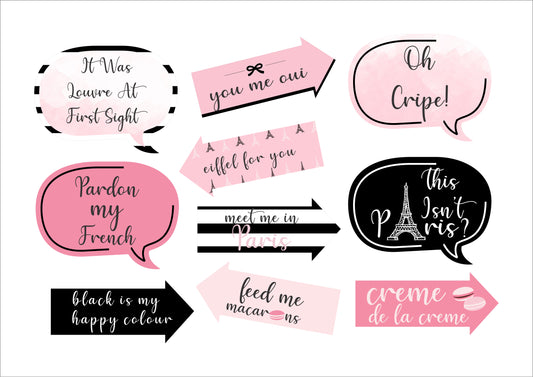 It Was
Louvre At
First Sight
you me oui
Oh
Cripe!
eiffel for you
Pardon
my
French
meet me in
Paris
this
Isn't
Paris?
black is my
happy colour
feed me
macarons
creme
de la creme